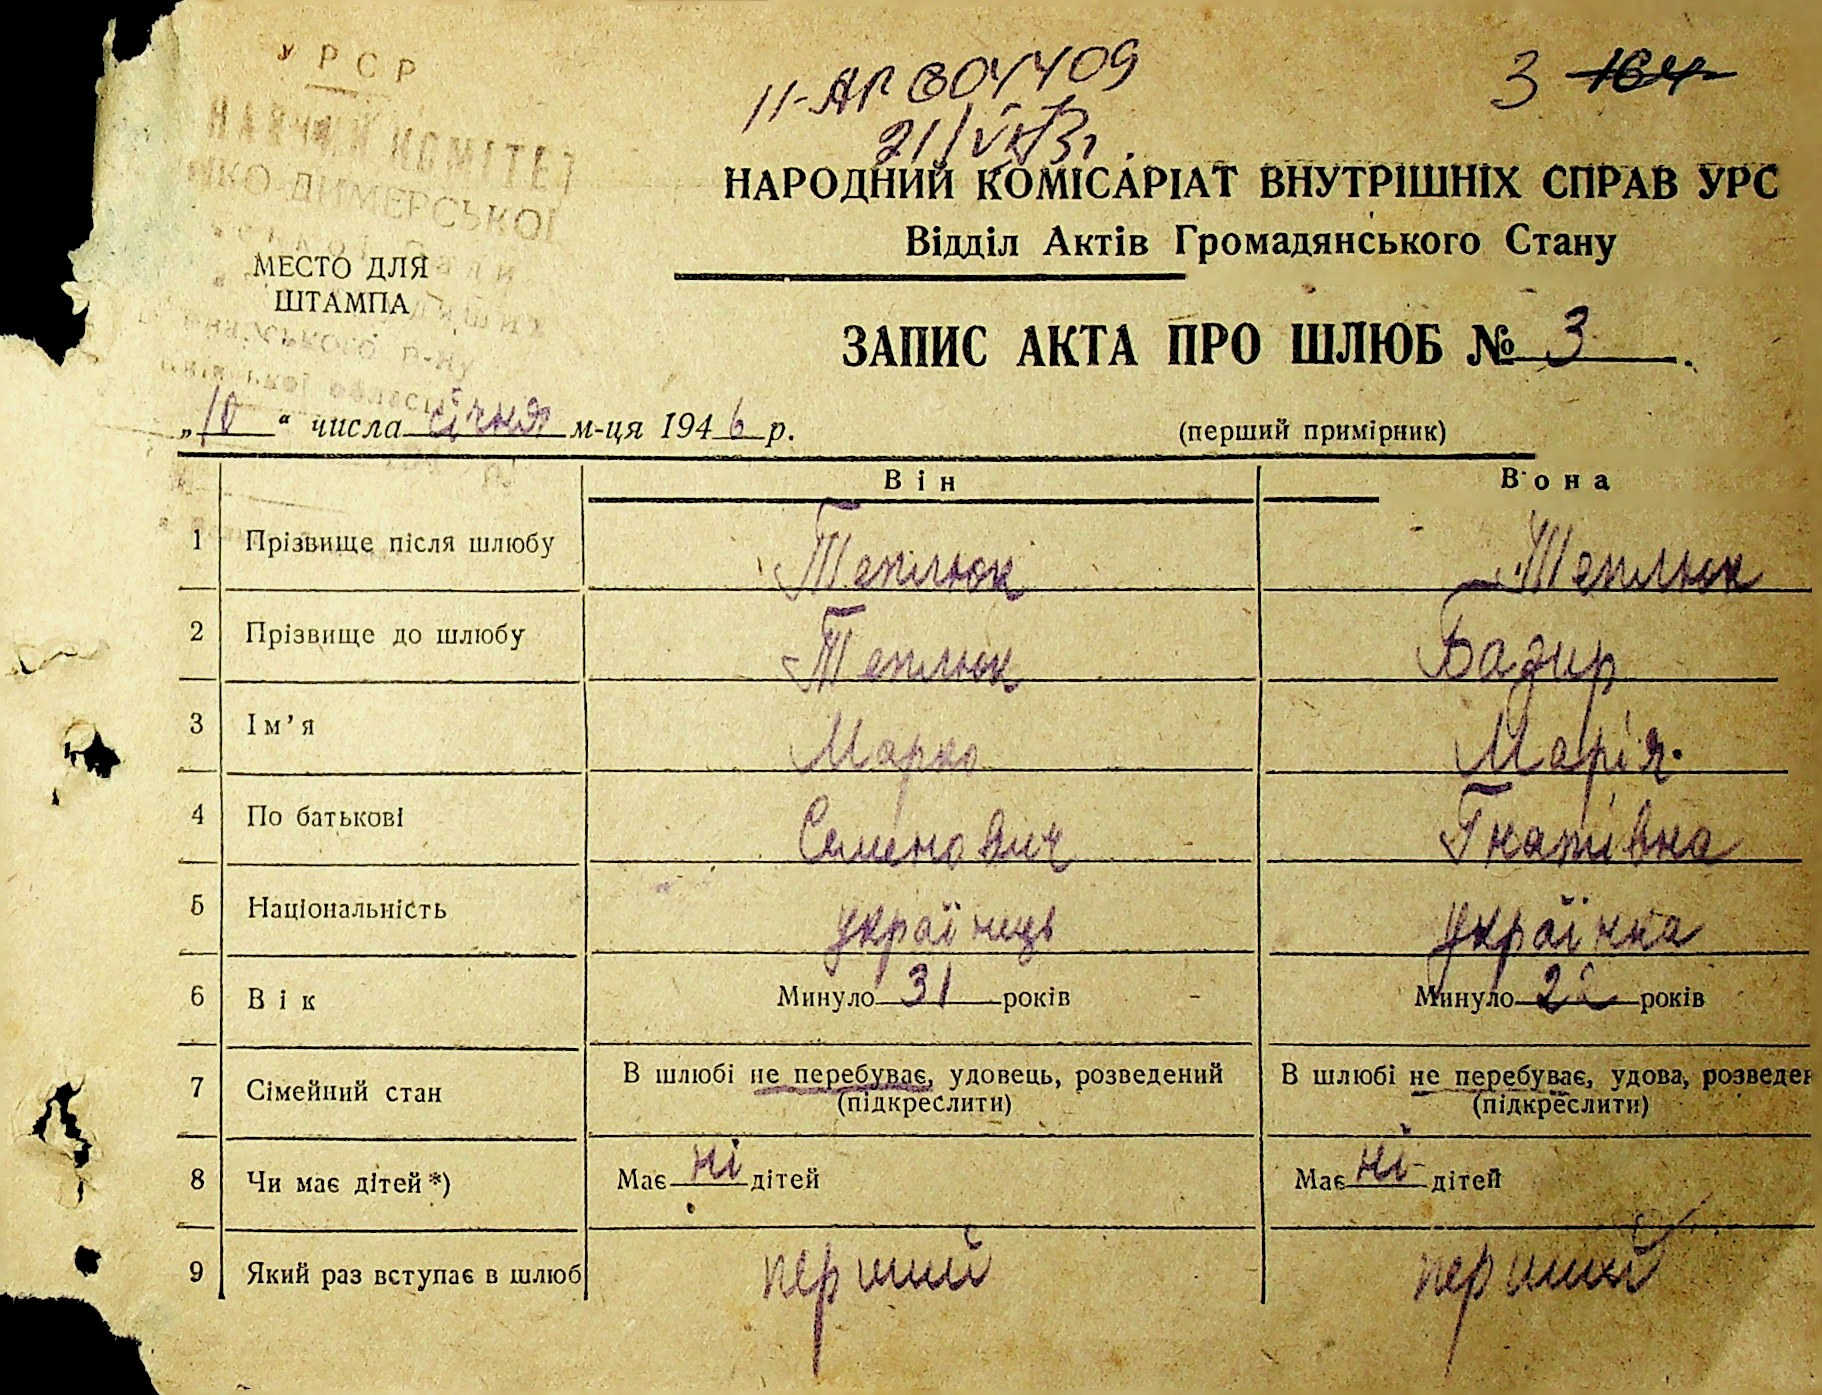 УРСР
КОМІТЕТ
ДИМЕРСЬКОЇ
МЕСТО ДЛЯ
ШТАМПА
3 164
НАРОДНИЙ КОМІСАРІАТ ВНУТРІШНІХ СПРАВ УРС
Відділ Актів Громадянського Стану
ЗАПИС АКТА ПРО ШЛЮБ № 3.
„10“ числа січня м-ця 1946 р.
(перший примірник)
Він Вона
1 Прізвище після шлюбу Теплюк Теплюк
2 Прізвище до шлюбу Теплюк Бадир
3 Ім’я Марко Марія
4 По батькові Семенович Гнатівна
5 Національність українець українка
6 Вік Минуло 31 років Минуло років
7 Сімейний стан В шлюбі не перебуває, удовець, розведений В шлюбі не перебуває, удова, розведен
(підкреслити) (підкреслити)
8 Чи має дітей*) Має ні дітей Має ні дітей
9 Який раз вступає в шлюб перший перший